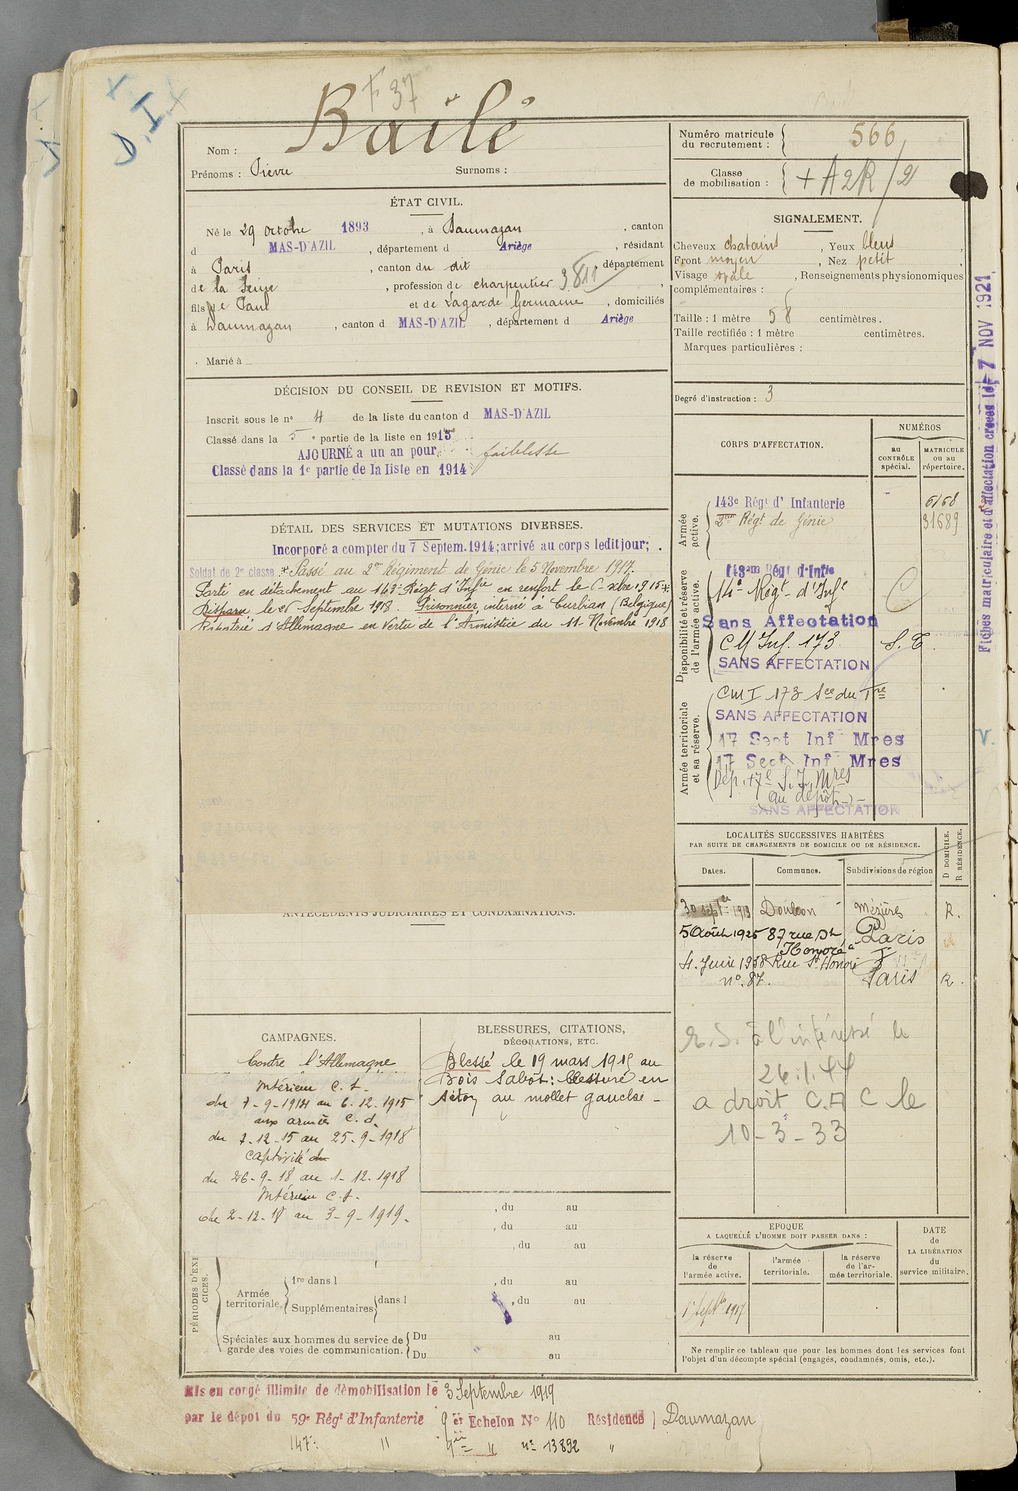 F 37
D.I
Nom : Bailé
Prénoms : Pierre Surnoms :
Numéro matricule du recrutement : 566
Classe de mobilisation : + A2R/2
ÉTAT CIVIL.
Né le 29 octobre 1893, à Daumazan, canton
d MAS-D'AZIL, département d Ariège, résidant
à Paris, canton du dit département
de la Seine, profession de charpentier 3811
fils de Paul et de Lagarde Germaine, domiciliés
à Daumazan, canton d MAS-D'AZIL, département d Ariège
Marié à
SIGNALEMENT.
Cheveux chatains, Yeux bleus,
Front moyen, Nez petit,
Visage ovale, Renseignements physionomiques
complémentaires :
Taille : 1 mètre 58 centimètres.
Taille rectifiée : 1 mètre centimètres.
Marques particulières :
Degré d'instruction : 3
DÉCISION DU CONSEIL DE REVISION ET MOTIFS.
Inscrit sous le n° 4 de la liste du canton d MAS-D'AZIL
Classé dans la 5e partie de la liste en 1913
AJOURNÉ a un an pour faiblesse
Classé dans la 1e partie de la liste en 1914
DÉTAIL DES SERVICES ET MUTATIONS DIVERSES.
Incorporé a compter du 7 Septem. 1914; arrivé au corps ledit jour;
Soldat de 2e classe. * Passé au 2me Régiment de Génie le 5 Novembre 1917.
Parti en détachement au 143e Régt d'Infie en renfort le 6 Xbre 1915 *
Disparu le 26 Septembre 1918. Prisonnier, interné à (Belgique)
Rapatrié d'Allemagne en vertu de l'Armistice du 11 Novembre 1918
CORPS D'AFFECTATION.
NUMÉROS
au contrôle spécial.
MATRICULE ou au répertoire.
Armée active.
143e Régt d'Infanterie 6168
2me Régt de Génie 31689
Disponibilité et réserve de l'armée active.
143em Régt d'Infie
14e Régt d'Infie C
Sans Affectation
CM Inf. 173 S.T.
SANS AFFECTATION
Armée territoriale et sa réserve.
CMI 173 Sce du Tre
SANS AFFECTATION
17 Sect Inf Mres
17 Sect Inf Mres
Dép. 17e S.I. Mres
au dépôt
SANS AFFECTATION
Fiches matriculaire et d'affectation créées le 7 NOV 1921
LOCALITÉS SUCCESSIVES HABITÉES
PAR SUITE DE CHANGEMENTS DE DOMICILE OU DE RÉSIDENCE.
Dates. Communes. Subdivisions de région
D DOMICILE. R RÉSIDENCE.
30 septbre 1919 Doulcon Mézières R.
5 Août 1925 87 rue St Honoré Paris
4 Juin 1938 Rue St Honoré
n° 87. Paris R.
R.S. à l'intéressé le
26.1.44
a droit C.A C le
10-3-33
ANTÉCÉDENTS JUDICIAIRES ET CONDAMNATIONS.
CAMPAGNES.
Contre l'Allemagne
Intérieur C.S.
du 7-9-1914 au 6.12.1915
aux armées C.d.
du 7-12-15 au 25-9-1918
captivité
du 26-9-18 au 1-12-1918
Intérieur C.S.
du 2-12-18 au 3-9-1919.
BLESSURES, CITATIONS,
DÉCORATIONS, ETC.
Blessé le 19 mars 1915 au
Bois Sabot: blessure en
séton au mollet gauche -
, du au
, du au
, du au
PÉRIODES D'EXERCICES.
Armée territoriale
1re dans l , du au
Supplémentaires dans l , du au
Spéciales aux hommes du service de garde des voies de communication. Du au
Du au
EPOQUE
A LAQUELLE L'HOMME DOIT PASSER DANS :
la réserve de l'armée active.
l'armée territoriale.
la réserve de l'armée territoriale.
DATE de LA LIBÉRATION du service militaire.
1er Septbre 1917
Ne remplir ce tableau que pour les hommes dont les services font
l'objet d'un décompte spécial (engagés, condamnés, omis, etc.).
Mis en congé illimité de démobilisation le 3 Septembre 1919
par le dépôt du 59e Régt d'Infanterie 9er Echelon N° 110 Résidence Daumazan
147e " " n° 13892 "